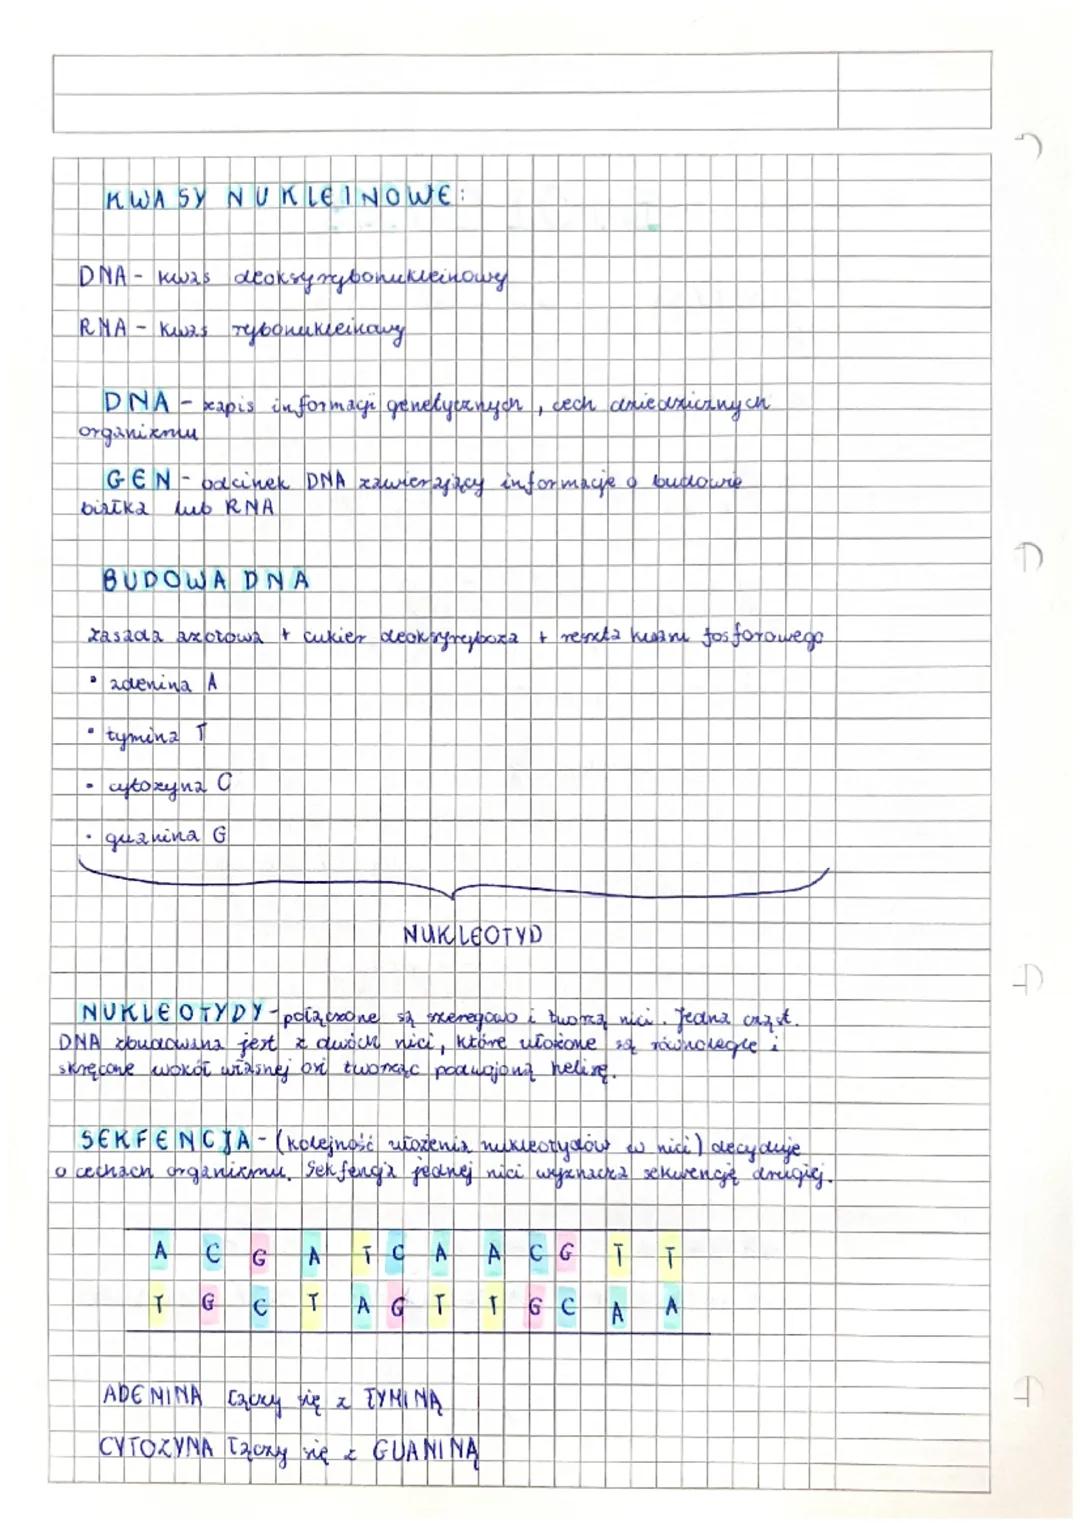 KWASY NUKLEINOWE:
DNA - kwas deoksyrybonukleinowy
RNA - kwas rybonukleinowy
DNA - zapis informacji genetycznych, cech dziedzicznych
organizmu
GEN - odcinek DNA zawierający informacje o budowie
białka lub RNA
BUDOWA DNA
zasada azotowa + cukier deoksyryboza + reszta kwasu fosforowego
• adenina A
• tymina T
• cytozyna C
• guanina G
NUKLEOTYD
NUKLEOTYDY - połączone są szeregowo i tworzą nici. Jedna cząst.
DNA zbudowana jest z dwóch nici, które ułożone są równolegle i
skręcone wokół własnej osi tworząc podwójną helisę.
SEKFENCJA - (kolejność ułożenia nukleotydów w nici) decyduje
o cechach organizmu. Sekfencja jednej nici wyznacza sekwencję drugiej.
A C G A T C A A C G T T
T G C T A G T T G C A A
ADENINA łączy się z TYMINĄ
CYTOZYNA łączy się z GUANINĄ